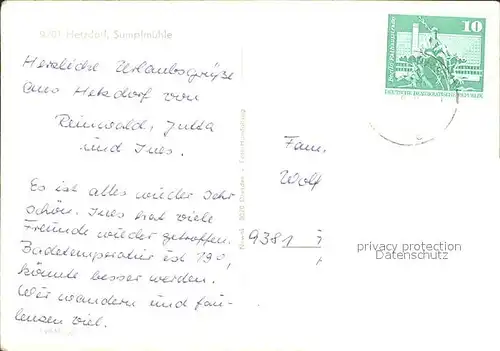 9201 Hetzdorf, Sumpfmühle
Herzliche Urlaubsgrüße
aus Hetzdorf von
Reinwald, Jutta
und Ines.
Es ist alles wieder sehr
schön. Ines hat viele
Freunde wieder getroffen.
Badetemperatur ist 19°,
könnte besser werden.
Wir wandern und fau-
lenzen viel.
Fam.
Wolf
9381
10
privacy protection
Datenschutz